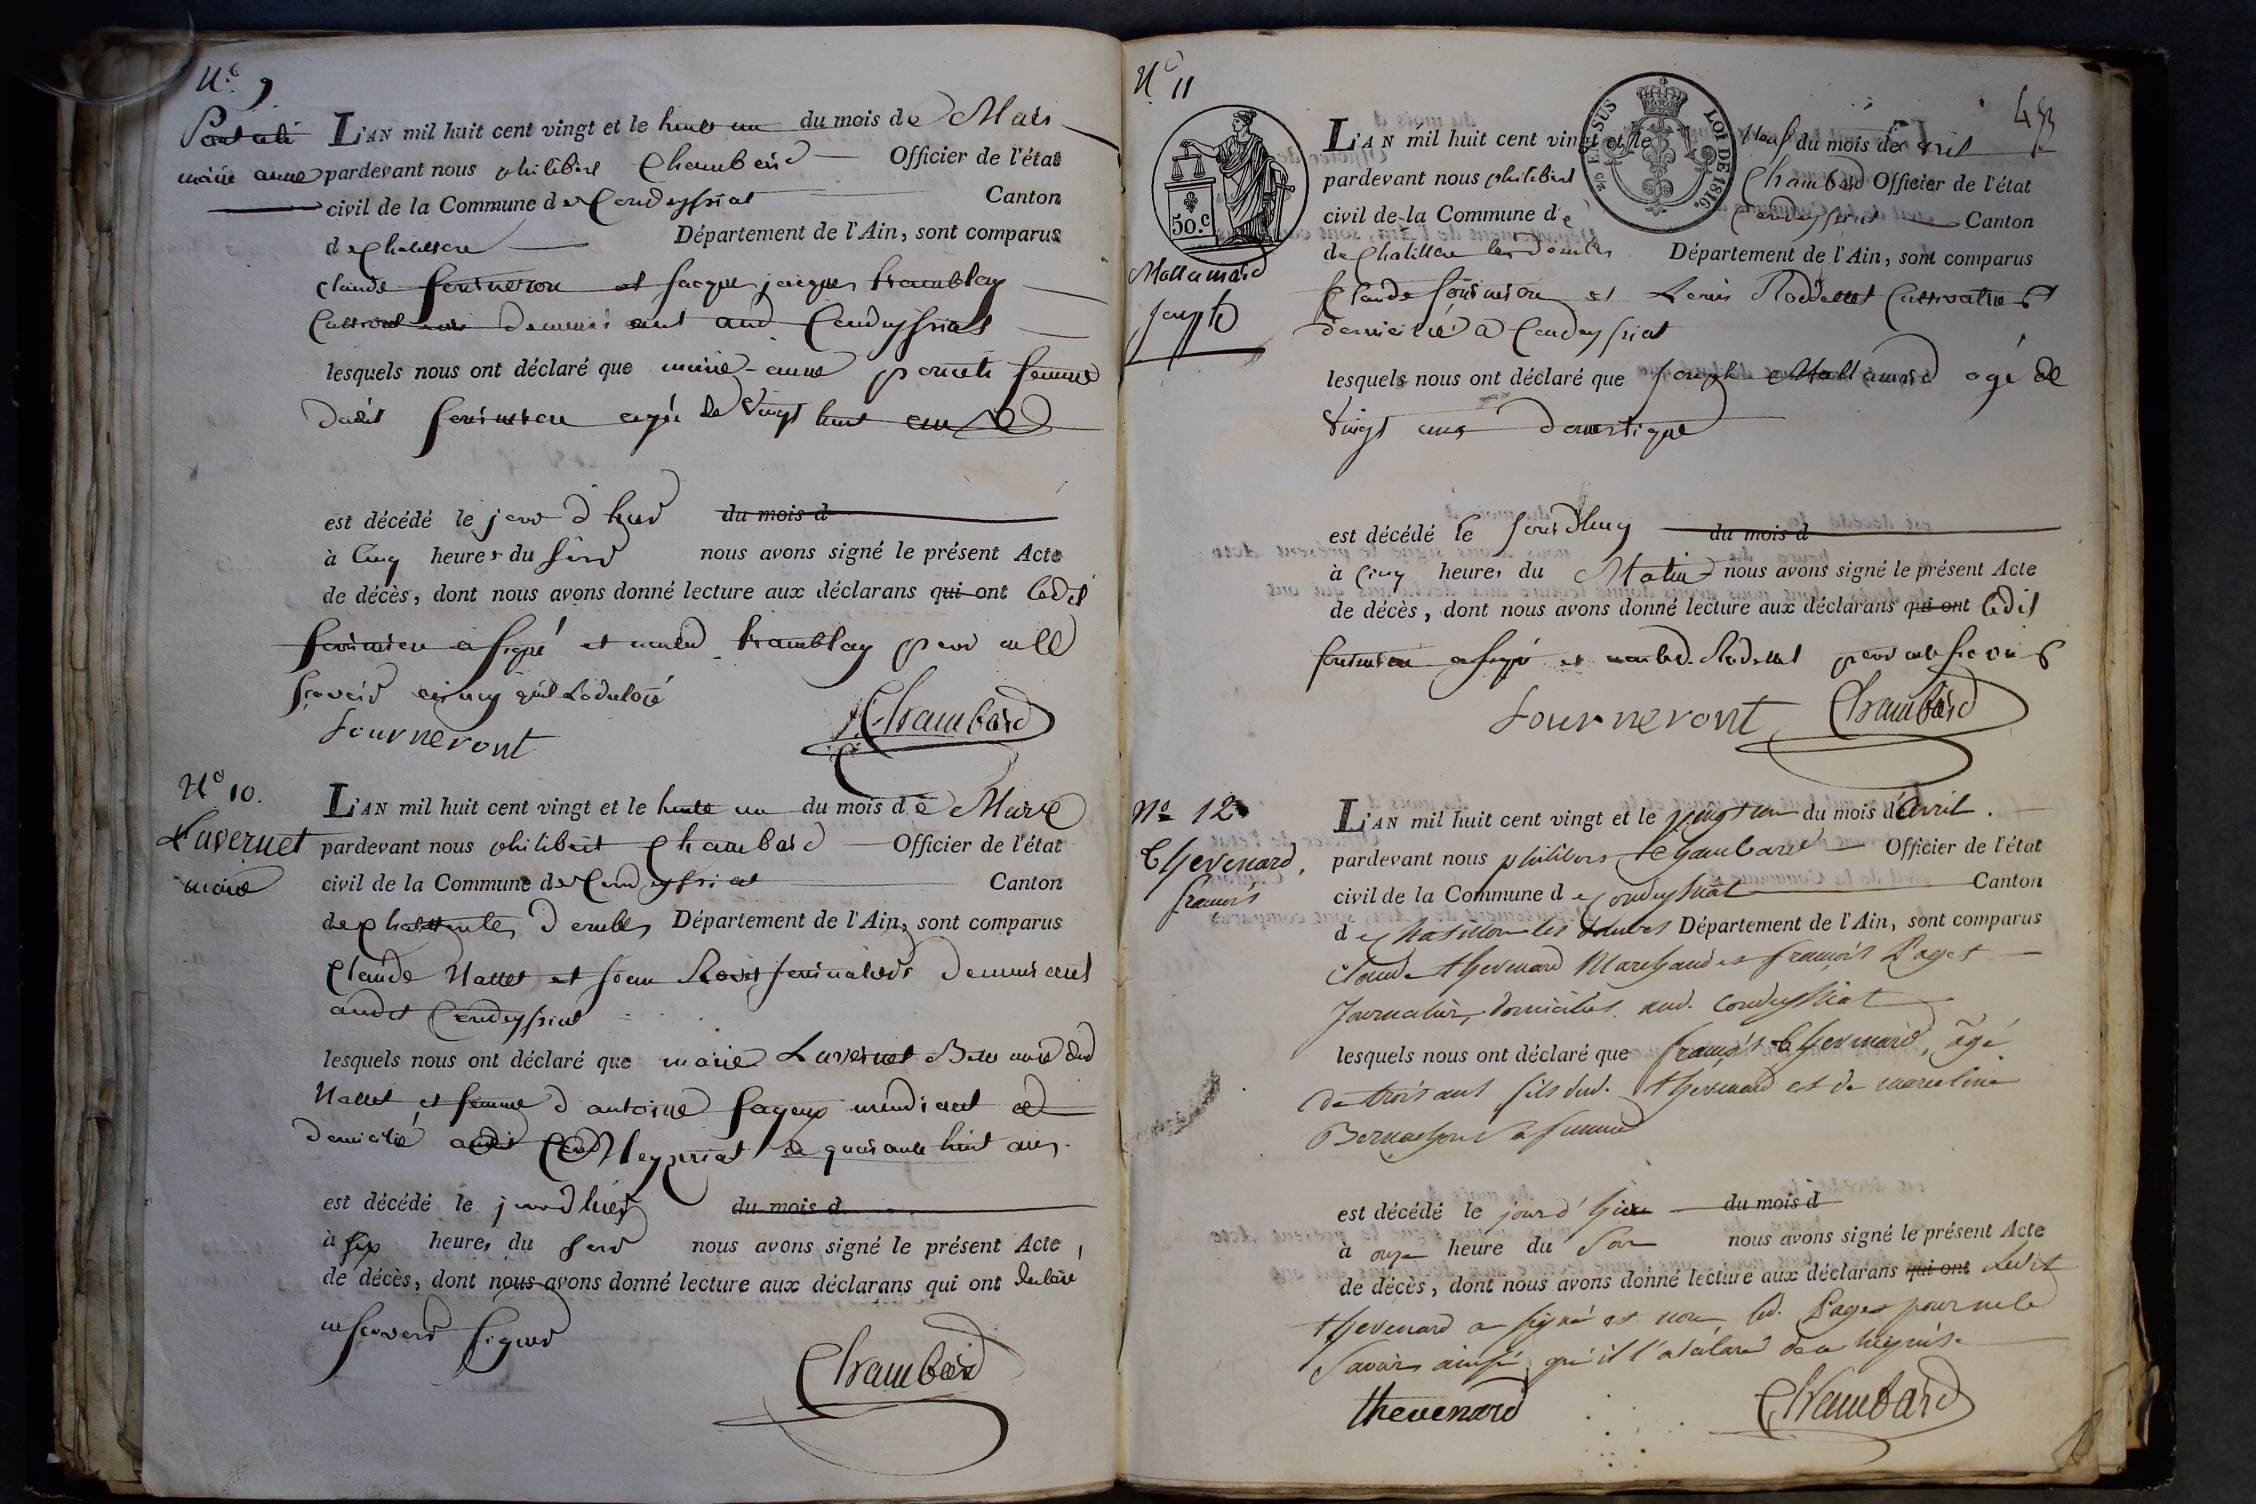 N.o 9
marie anne
L'AN mil huit cent vingt et le trente un du mois de Mars
pardevant nous philibert Chambard Officier de l'état
civil de la Commune de Condeyssiat Canton
de Département de l'Ain, sont comparus
claude fourneron et jacques tramblay
Cultivateurs demeurant aud Condeyssiat
lesquels nous ont déclaré que marie-anne femme
dudit fourneron agée de vingt huit ans
est décédé le jour d'hier du mois d
à Cinq heures du soir nous avons signé le présent Acte
de décès, dont nous avons donné lecture aux déclarans qui ont ledit
a signé et non led. tramblay pour ne le
Fourneront
Chambard
N.o 10.
Luvernet
marie
L'AN mil huit cent vingt et le trente un du mois de Mars
pardevant nous philibert Chambard Officier de l'état
civil de la Commune de Condeyssiat Canton
de Département de l'Ain, sont comparus
Claude Nallet et jean journaliers demeurant
audit Condeyssiat
lesquels nous ont déclaré que marie Luvernet Belle mere dud
Nallet et femme d'antoine mendiant
domicilié Neyzeriat de quarante huit ans.
est décédé le jour d'hier du mois d
à six heures du soir nous avons signé le présent Acte
de décès, dont nous avons donné lecture aux déclarans qui ont declaré
ne scavoir signer
Chambard
N.o 11
50.C
EN SUS
LOI DE 1816.
Mallamard
joseph
L'AN mil huit cent vingt et le Neuf du mois de avril
pardevant nous philibert Chambard Officier de l'état
civil de la Commune de Condeyssiat Canton
de Chatillon les Dombes Département de l'Ain, sont comparus
Claude fourneron et Louis Rodellet Cultivateurs
domiciliés a Condeyssiat
lesquels nous ont déclaré que joseph Mallamard agé de
vingt ans domestique
est décédé le jourdhuy du mois d
à Cinq heures du Matin nous avons signé le présent Acte
de décès, dont nous avons donné lecture aux déclarans qui ont ledit
a signé et non led. Rodellet pour ne le scavoir
Fourneront
Chambard
No 12
Thevenard,
françois
L'AN mil huit cent vingt et le vingt un du mois d'avril.
pardevant nous philibert Chambard Officier de l'état
civil de la Commune de Condeyssiat Canton
de Chatillon les dombes Département de l'Ain, sont comparus
claude thevenard Marchand et françois Pages
Journalier, domiciliés aud. Condeyssiat
lesquels nous ont déclaré que françois Thevenard, âgé
de trois ans fils dud. thevenard et de marceline
Bernachon sa femme
est décédé le jour d'hier du mois d
à onze heure du Soir nous avons signé le présent Acte
de décès, dont nous avons donné lecture aux déclarans qui ont Ledit
thevenard a signé et non led. Pages pour ne le
Savoir ainsi qu'il l'a déclaré de ce requis.
thevenard
Chambard